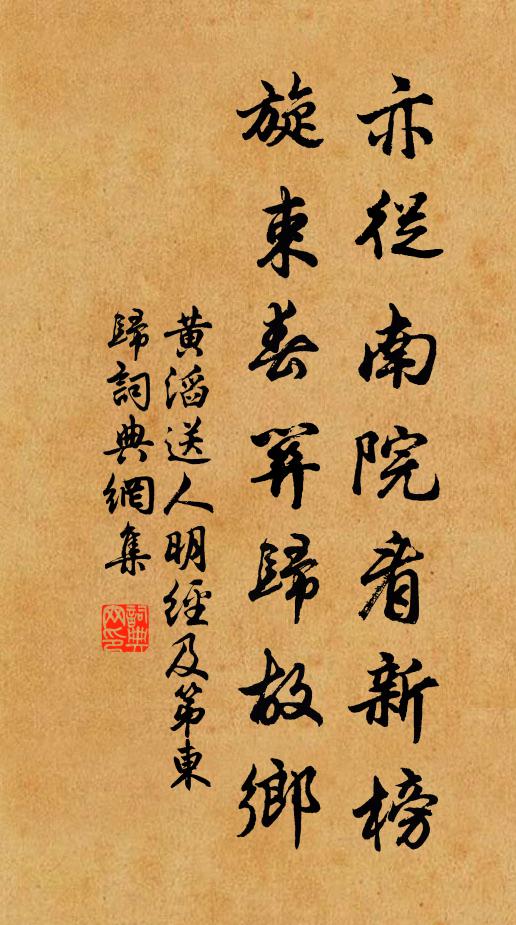 亦從南院看新榜
旋束春関歸故鄉
黃滔送人明經及第東
歸詞典網集
詞典網印